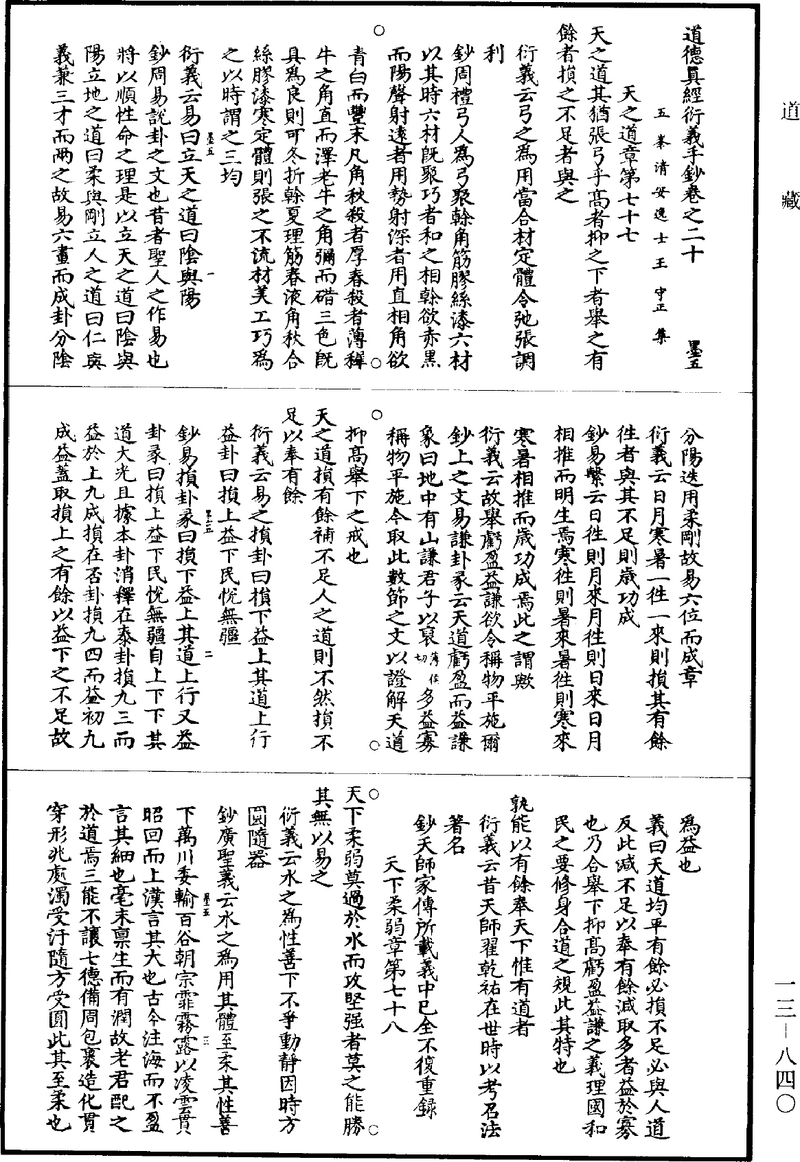 道藏
道德眞經衍義手鈔卷之二十
墨五
五峯清安逸士王守正集
天之道章第七十七
天之道其猶張弓乎高者抑之下者舉之有
餘者損之不足者與之
衍義云弓之為用當合材定體令弛張調
利
鈔周禮弓人為弓聚榦角筋膠絲漆六材
以其時六材旣聚巧者和之相榦欲赤黑
而陽聲射遠者用勢射深者用直相角欲
青白而豐末凡角秋殺者厚春殺者薄穉
牛之角直而澤老牛之角彌而䂳三色旣
具為良則可冬折榦夏理筋春液角秋合
絲膠漆寒定體則張之不流材美工巧為
之以時謂之三均
衍義云易曰立天之道曰陰與陽
墨五
一
鈔周易說卦之文也昔者聖人之作易也
將以順性命之理是以立天之道曰陰與
陽立地之道曰柔與剛立人之道曰仁與
義兼三才而兩之故易六畫而成卦分陰
分陽迭用柔剛故易六位而成章
衍義云日月寒暑一往一來則損其有餘
往者與其不足則歲功成
鈔易繫云日往則月來月往則日來日月
相推而明生焉寒往則暑來暑往則寒來
寒暑相推而歲功成焉此之謂歟
衍義云故舉虧盈益謙欲令稱物平施爾
鈔上之文易謙卦彖云天道虧盈而益謙
象曰地中有山謙君子以裒薄侯切多益寡
稱物平施今取此數節之文以證解天道
抑高舉下之戒也
天之道損有餘補不足人之道則不然損不
足以奉有餘
衍義云易之損卦曰損下益上其道上行
益卦曰損上益下民悅無疆
墨五
二
鈔易損卦彖曰損下益上其道上行又益
卦彖曰損上益下民悅無疆自上下下其
道大光且據本卦消釋在泰卦損九三而
益於上九成損在否卦損九四而益初九
成益蓋取損上之有餘以益下之不足故
為益也
義曰天道均平有餘必損不足必與人道
反此減不足以奉有餘減取多者益於寡
也乃合舉下抑高虧盈益謙之義理國和
民之要修身合道之規此其特也
孰能以有餘奉天下惟有道者
衍義云昔天師翟乾祐在世時以考召法
著名
鈔天師家傳所載義中已全不復重録
天下柔弱章第七十八
天下柔弱莫過於水而攻堅强者莫之能勝
其無以易之
衍義云水之為性善下不爭動靜因時方
圓隨器
鈔廣聖義云水之為用其體至柔其性善
墨五
三
下萬川委輸百谷朝宗霏霧露以凌雲貫
昭回而上漢言其大也古今注海而不盈
言其細也毫末禀生而有潤故老君配之
於道焉三能不讓七德備周包裹造化貫
穿形兆處濁受汙隨方受圓此其至柔也
一三—八四〇